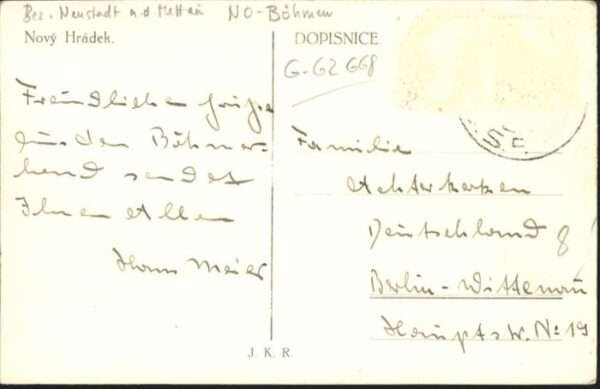 Bez. Neustadt a.d Mettau NO-Böhmen
Nový Hrádek.
DOPISNICE
G-G2 GG8
Freundliche Grüsse
aus den Böhmer-
land sendet
Ihnen Allen
Hans Meier
Familie
Achterkerken
Deutschland
Berlin-Wittenau
Hauptstr. No 19
J. K. R.